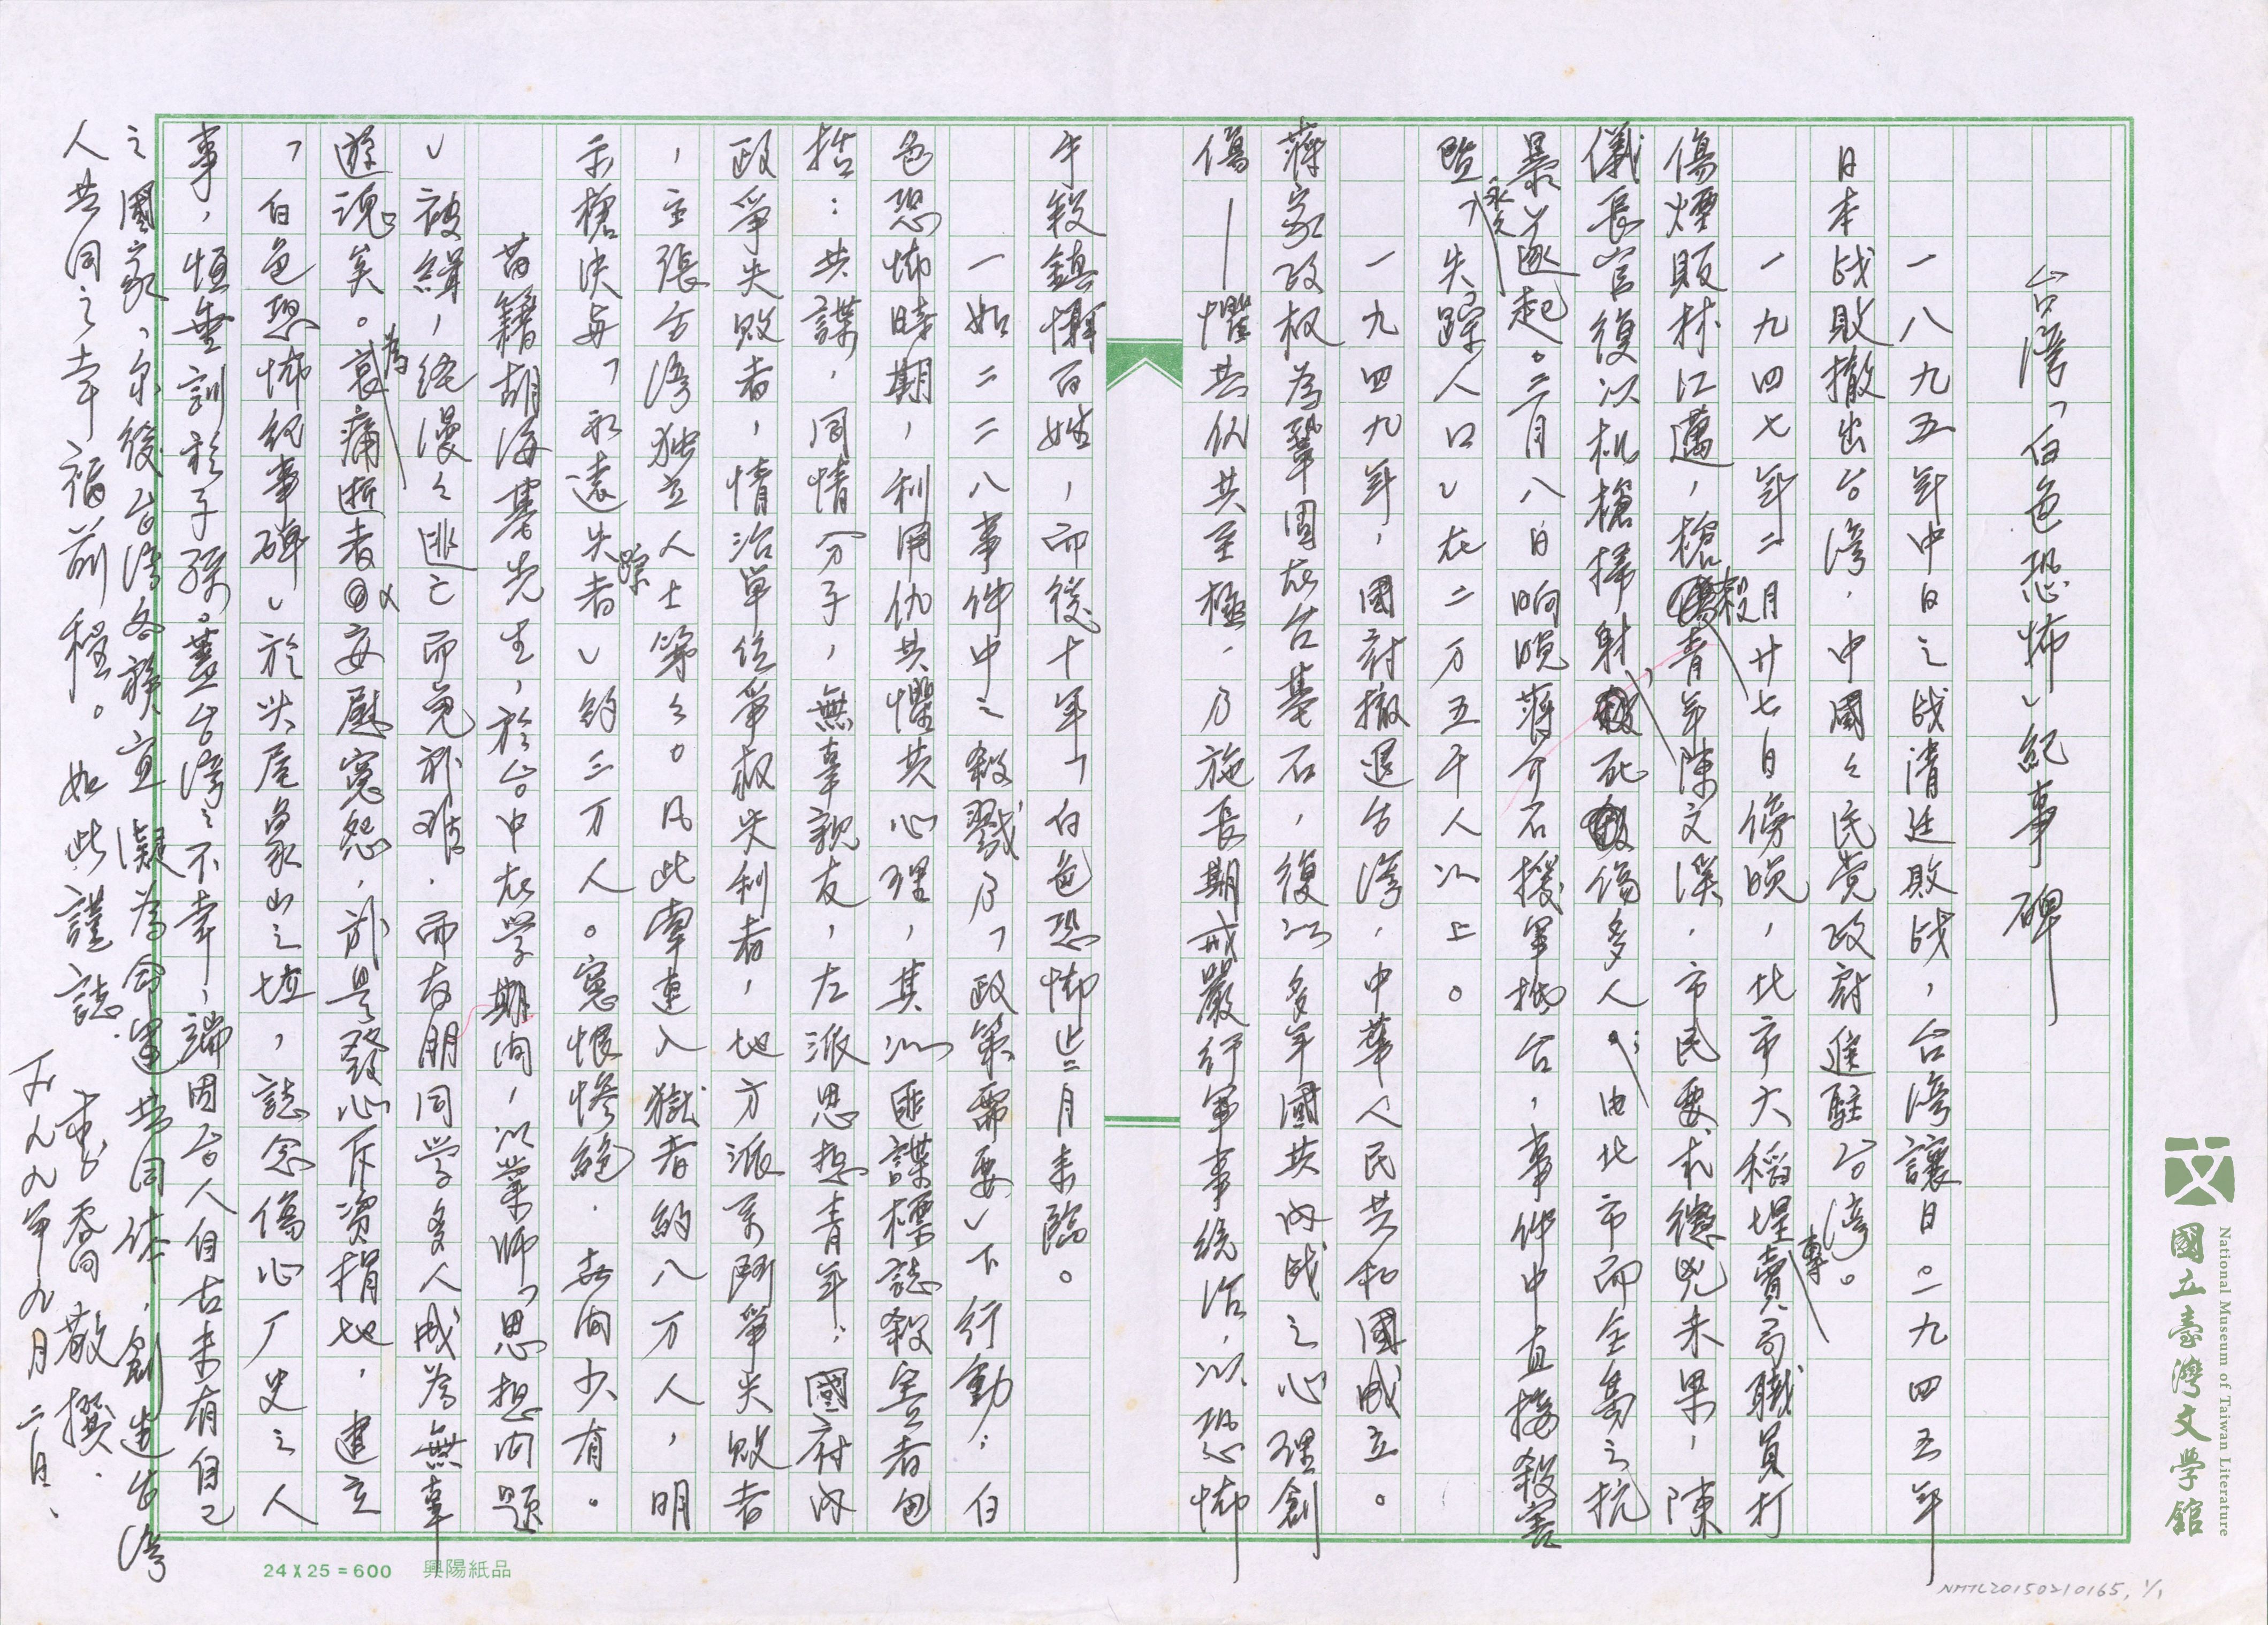 台湾「白色恐怖」紀事碑
一八九五年中日之战清廷敗战，台湾讓日。一九四五年
日本战敗撤出台湾，中國々民党政府進駐台湾。
一九四七年二月廿七日傍晚，北市大稻埕專賣局職員打
傷煙販林江邁，槍殺青年陳文溪，市民要求懲兇未果，陳
儀長官復以机槍掃射，死傷多人；由北市而全島之抗
暴遂起。三月八日晌晚蔣介石援軍抵台，事件中直接殺害
暨「永久失踪人口」在二万五千人以上。
一九四九年，國府撤退台湾，中華人民共和國成立。
蔣家政权為鞏固在台基石，復以多年國共內战之心理創
傷——懼共仇共至極，乃施長期戒嚴行軍事統治，以恐怖
殺鎮懾百姓，而後十年「白色恐怖」歲月来臨。
一如二二八事件中之殺戮乃「政策需要」下行動；白
色恐怖時期，利用仇共懼共心理，其以匪諜標誌殺害者包
括：共諜，同情分子，無辜親友，左派思想青年；國府內
政爭失敗者，情治单位爭权失利者，地方派系鬪爭失敗者
，主張台湾独立人士等々。凡此牽連入獄者約八万人，明
示槍決与「永遠失踪者」約三万人。冤恨慘絕，世间少有。
苗籍胡海基先生，於台中在学期间，以業師「思想问题
」被緝，終漫々逃亡而免於难，而友朋同学多人成為無辜
遊魂矣。為哀痛逝者安慰冤怨，於是發心斥資捐地，建立
「白色恐怖紀事碑」於尖尾象山之坡，誌念傷心厂史之人
事，恒垂訓於子孫。蓋台湾之不幸，端因台人自古未有自己
之國家，尔後台湾各族宜凝為命運共同体，創造台湾
人共同之幸福前程。如此謹誌。
李喬敬撰．
一九九九年九月二日、
24 X 25 = 600 興陽紙品
National Museum of Taiwan Literature
國立臺灣文學館
NMTL20150210165, 1/1